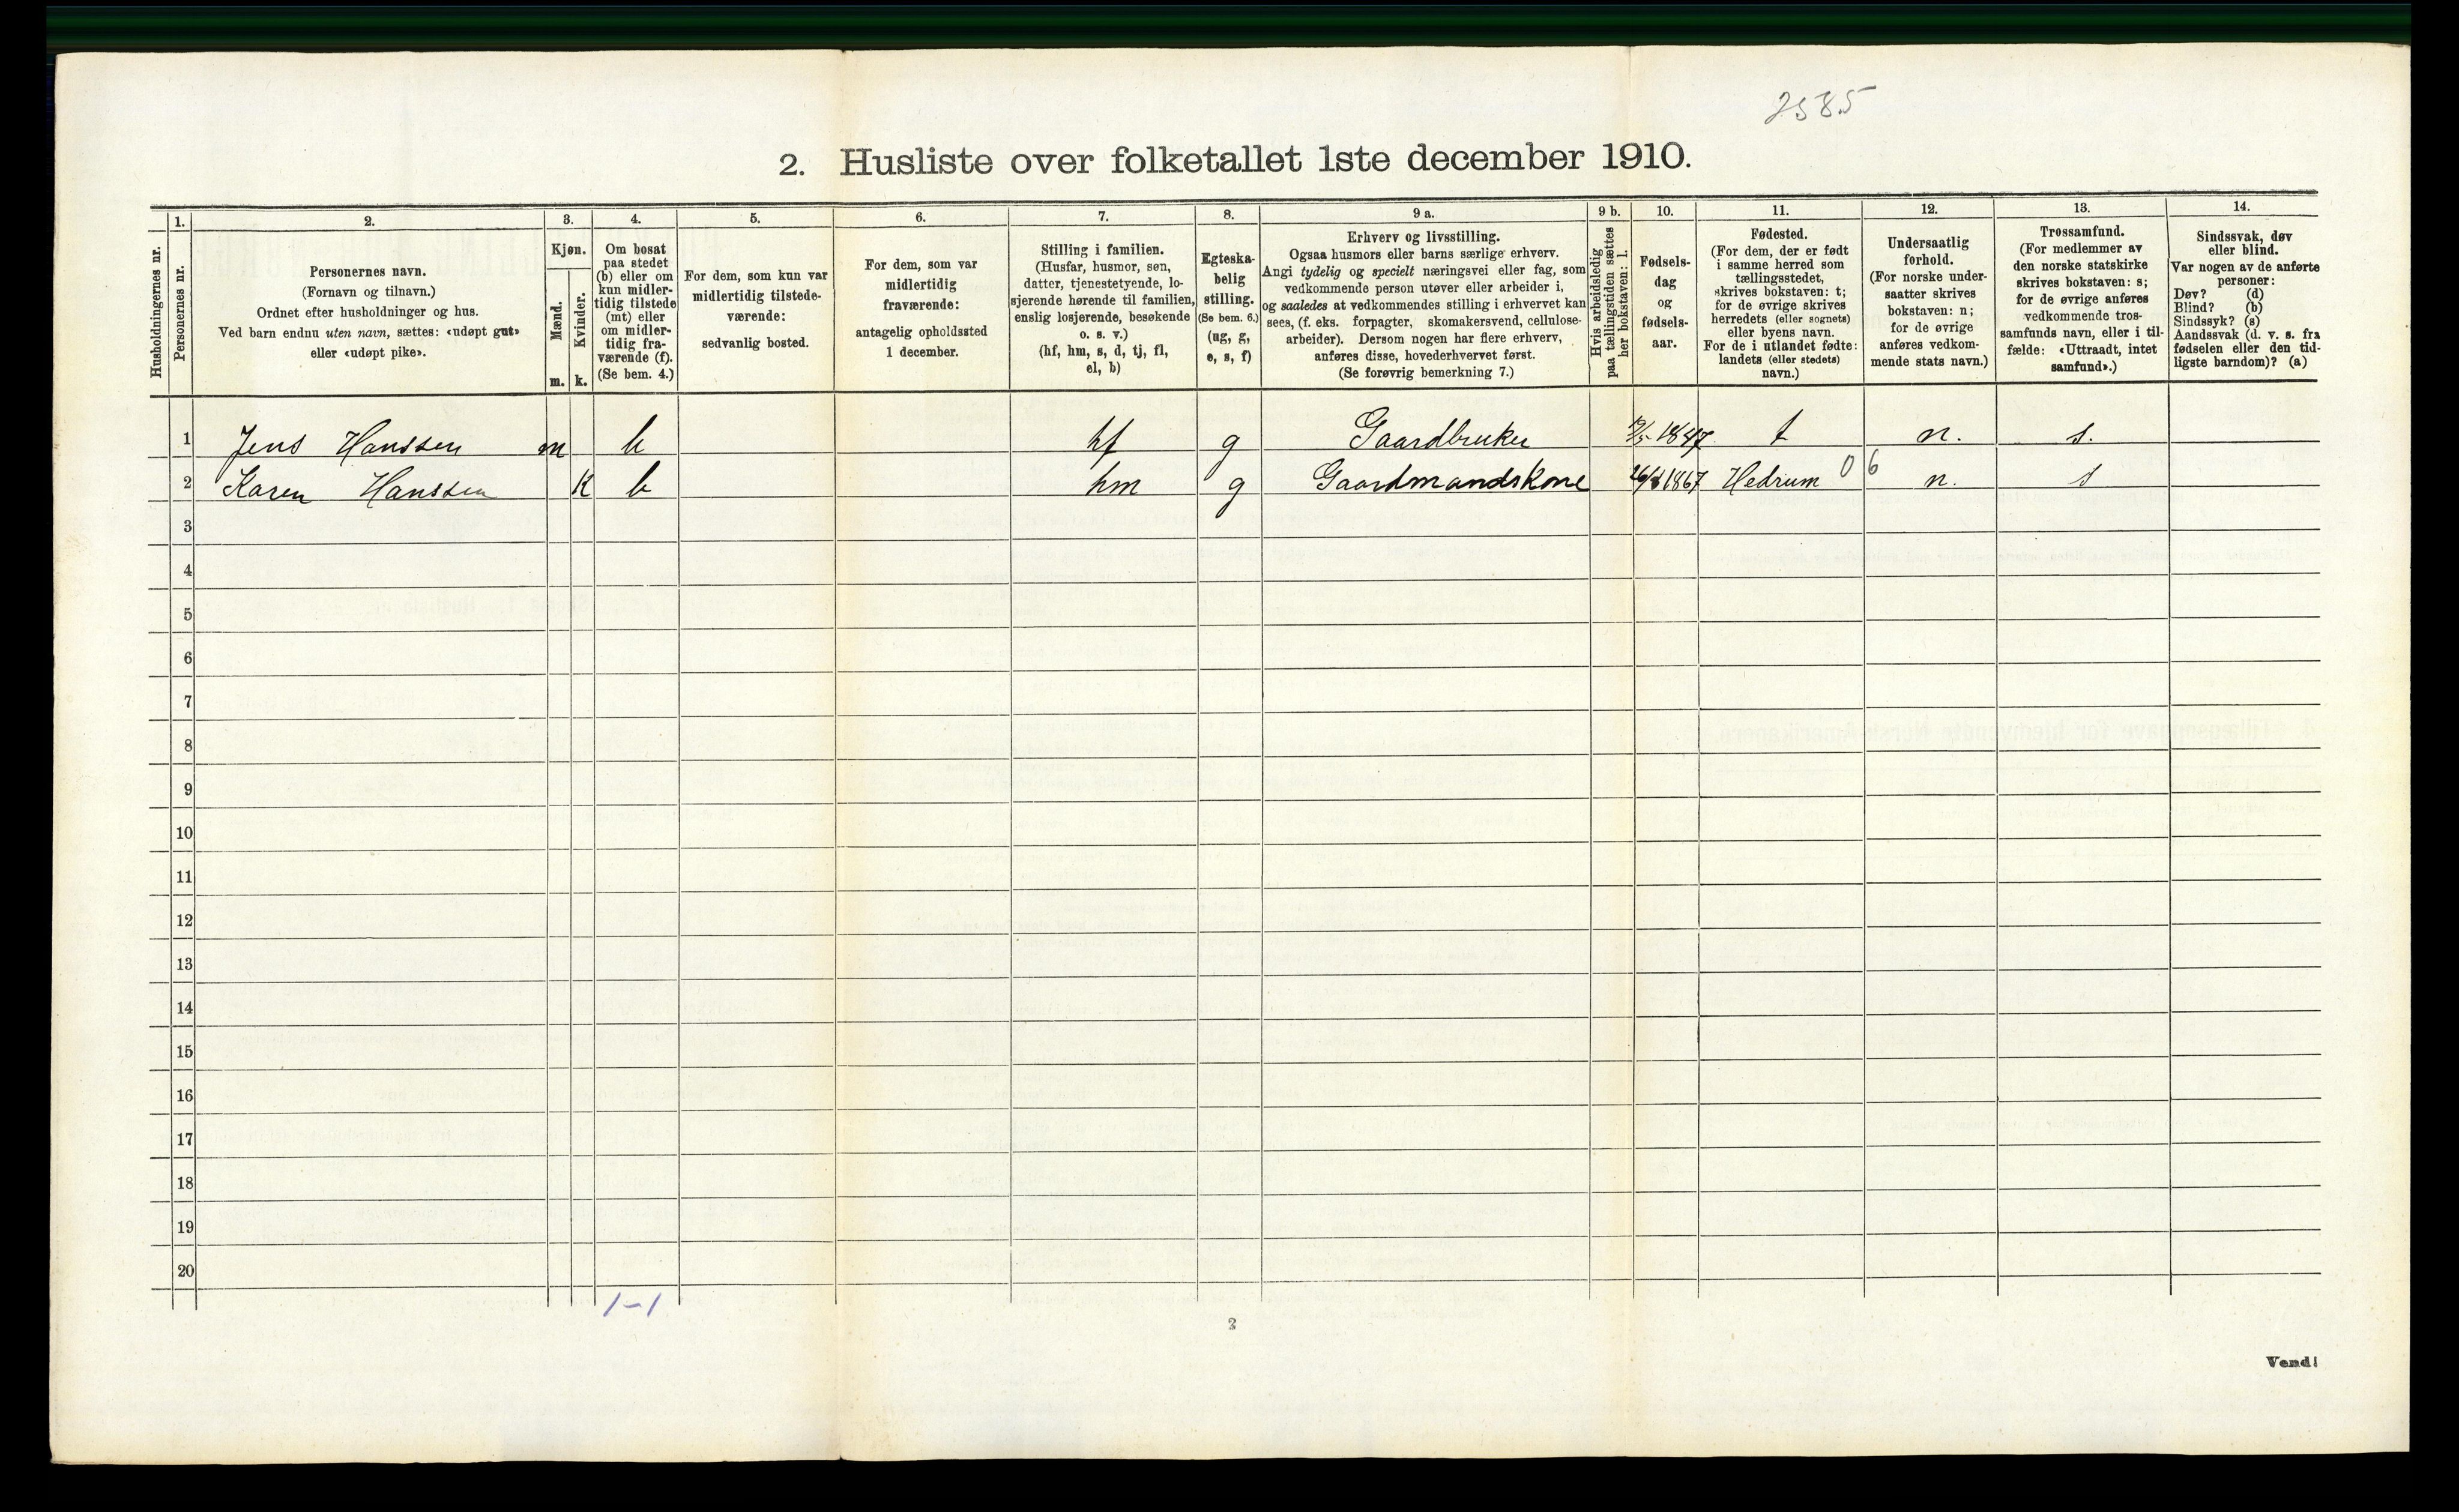 2585
2. Husliste over folketallet 1ste december 1910.
Husholdningernes nr.
1.
Personernes nr.
2.
Personernes navn.
(Fornavn og tilnavn.)
Ordnet efter husholdninger og hus.
Ved barn endnu uten navn, sættes: «udøpt gut»
eller «udøpt pike».
3.
Kjøn.
Mænd.
Kvinder.
m. k.
4.
Om bosat
paa stedet
(b) eller om
kun midler-
tidig tilstede
(mt) eller
om midler-
tidig fra-
værende (f).
(Se bem. 4.)
5.
For dem, som kun var
midlertidig tilstede-
værende:
sedvanlig bosted.
6.
For dem, som var
midlertidig
fraværende:
antagelig opholdssted
1 december.
7.
Stilling i familien.
(Husfar, husmor, søn,
datter, tjenestetyende, lo-
sjerende hørende til familien,
enslig losjerende, besøkende
o. s. v.)
(hf, hm, s, d, tj, fl,
el, b)
8.
Egteska-
belig
stilling.
(Se bem. 6.)
(ug, g,
e, s, f)
9 a.
Erhverv og livsstilling.
Ogsaa husmors eller barns særlige erhverv.
Angi tydelig og specielt næringsvei eller fag, som
vedkommende person utøver eller arbeider i,
og saaledes at vedkommendes stilling i erhvervet kan
sees, (f. eks. forpagter, skomakersvend, cellulose-
arbeider). Dersom nogen har flere erhverv,
anføres disse, hovederhvervet først.
(Se forøvrig bemerkning 7.)
9 b.
Hvis arbeidsledig
paa tællingstiden sættes
her bokstaven: l.
10.
Fødsels-
dag
og
fødsels-
aar.
11.
Fødested.
(For dem, der er født
i samme herred som
tællingsstedet,
skrives bokstaven: t;
for de øvrige skrives
herredets (eller sognets)
eller byens navn.
For de i utlandet fødte:
landets (eller stedets)
navn.)
12.
Undersaatlig
forhold.
(For norske under-
saatter skrives
bokstaven: n;
for de øvrige
anføres vedkom-
mende stats navn.)
13.
Trossamfund.
(For medlemmer av
den norske statskirke
skrives bokstaven: s;
for de øvrige anføres
vedkommende tros-
samfunds navn, eller i til-
fælde: «Uttraadt, intet
samfund».)
14.
Sindssvak, døv
eller blind.
Var nogen av de anførte
personer:
Døv? (d)
Blind? (b)
Sindssyk? (s)
Aandssvak (d. v. s. fra
fødselen eller den tid-
ligste barndom)? (a)
1 Jens Hanssen m b hf g Gaardbruker 1847 t n. s.
2 Karen Hanssen K b hm g Gaardmandskone 1867 Hedrum 06 n. s
3
4
5
6
7
8
9
10
11
12
13
14
15
16
17
18
19
20
1-1
2
Vend!